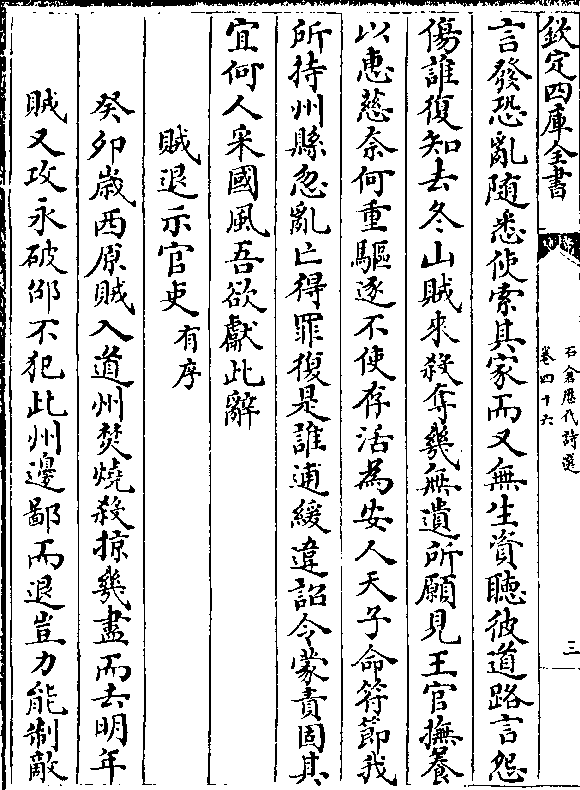 欽定四庫全書
石倉歷代詩選
卷四十六
三
言發恐亂隨悉使索其家而又無生資聽彼道路言怨
傷誰復知去冬山賊來殺奪幾無遺所願見王官撫養
以惠慈奈何重驅逐不使存活為安人天子命符節我
所持州縣忽亂亡得罪復是誰逋緩違詔令蒙責固其
宜何人采國風吾欲獻此辭
賊退示官吏有序
癸卯歲西原賊入道州焚燒殺掠幾盡而去明年
賊又攻永破邵不犯此州邊鄙而退豈力能制敵